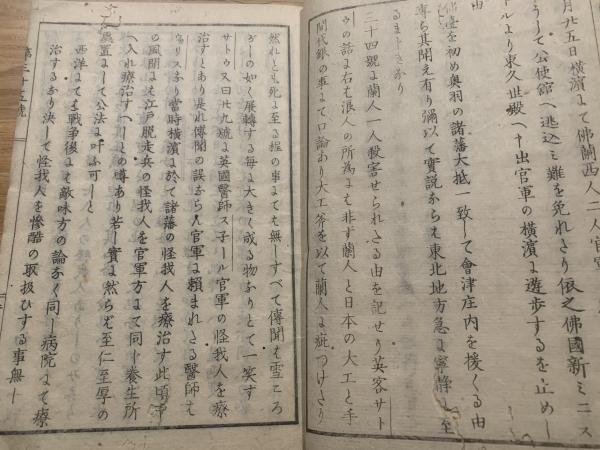 月廿五日横濱にて佛蘭西人二人官軍
うちて公使館へ逃込ミ難を免れさり依之佛國新ミニス
トルより東久世殿へ申出官軍の横濱に遊歩するを止めし
由
佛臺を初め奥羽の諸藩大抵一致して會津庄内を援くる由
専ら其聞え有り彌以て實説ならは東北地方急に寧静に至
るましきなり
三十四號に蘭人一人殺害せられたる由を記せり英客サト
ウの話に右も浪人の所為にも非す蘭人と日本の大工と手
間代銀の事にて口論あり大工斧を以て蘭人に疵つけたり
然れとも死に至る程の事にても無しすべて傳聞は雪ころ
がしの如く展轉する毎に大きく成る物なりとて一笑す
サトウ又曰廿九號に英國醫師ス子ール官軍の怪我人を療
治すとあり是れ傳聞の誤なり官軍に頼まれたる醫師も
有り當時横濱に於て諸藩の怪我人を療治す此頃市
の風聞に江戸脱走兵の怪我人を官軍方にて同し養生所
へ入れ療治すへしとの噂あり若し實に然らは至仁至厚の
處置にして公法に叶ふ可しと
西洋にても戦争後は敵味方の論なく同し病院にて療
治するなり決して怪我人を慘酷の取扱ひする事無し
第三十五號